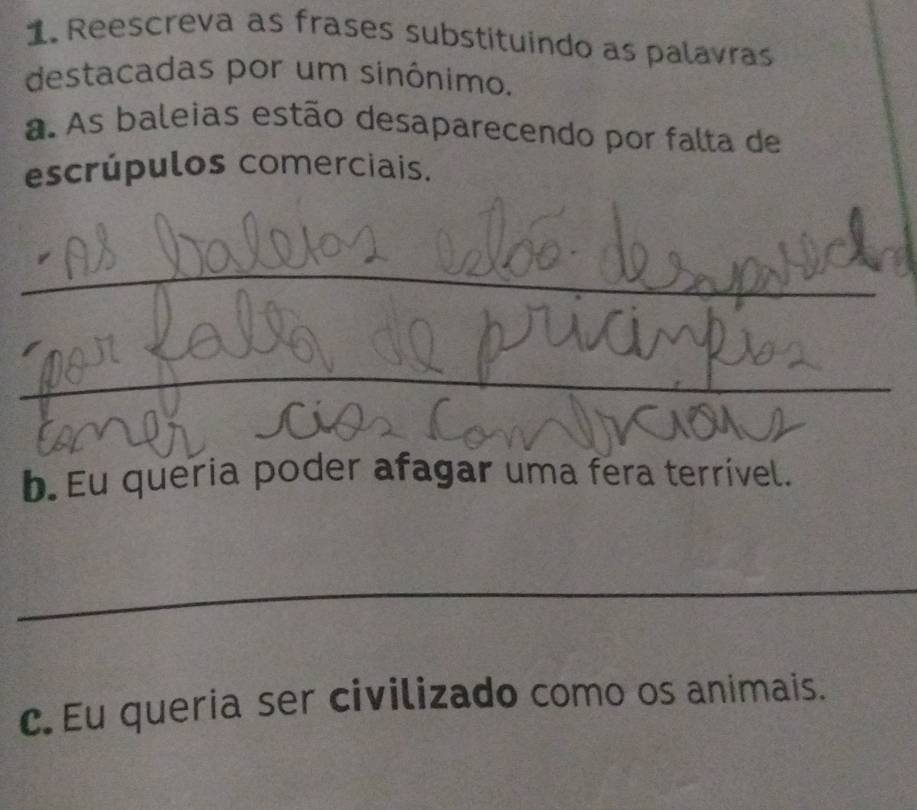 1. Reescreva as frases substituindo as palavras
destacadas por um sinônimo.
a. As baleias estão desaparecendo por falta de
escrúpulos comerciais.
As baleias estão desaparec
por falta de pricimpios
comer
b. Eu queria poder afagar uma fera terrível.
c. Eu queria ser civilizado como os animais.